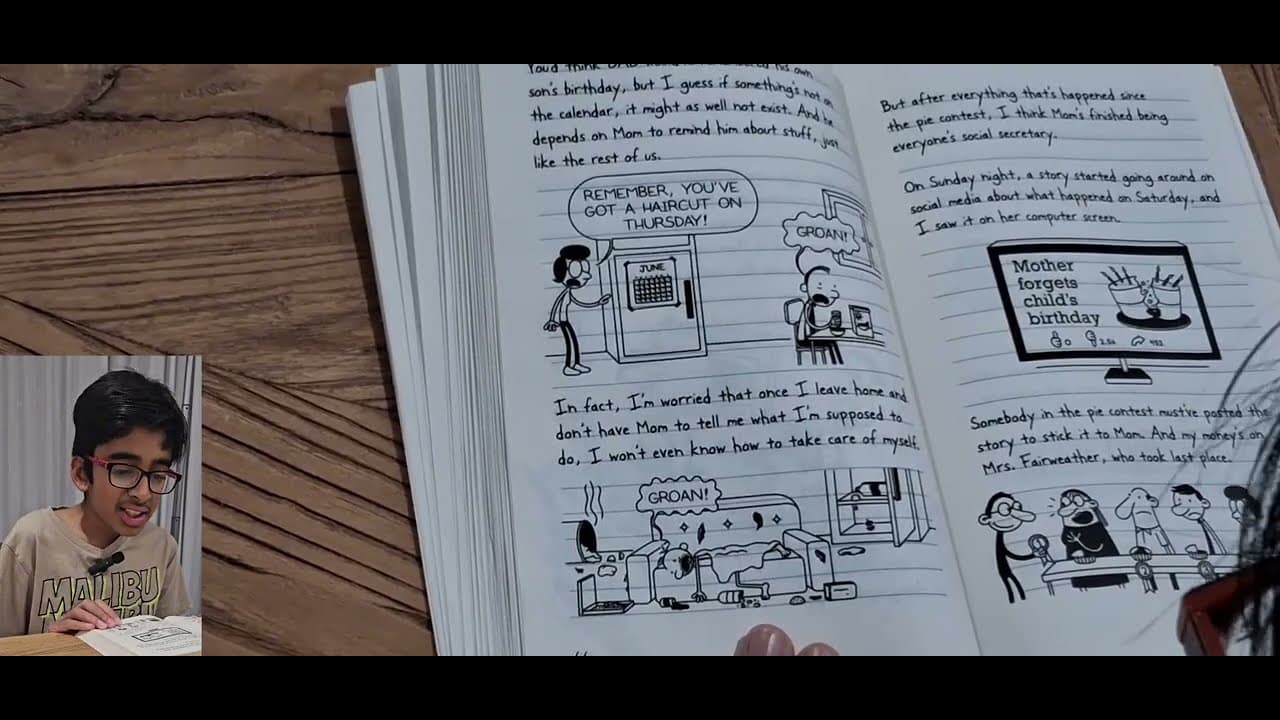 son's birthday, but I guess if something's not on
the calendar, it might as well not exist. And he
depends on Mom to remind him about stuff, just
like the rest of us.
REMEMBER, YOU'VE
GOT A HAIRCUT ON
THURSDAY!
GROAN!
JUNE
In fact, I'm worried that once I leave home and
don't have Mom to tell me what I'm supposed to
do, I won't even know how to take care of myself.
GROAN!
But after everything that's happened since
the pie contest, I think Mom's finished being
everyone's social secretary.
On Sunday night, a story started going around on
social media about what happened on Saturday, and
I saw it on her computer screen.
Mother
forgets
child's
birthday
0
Somebody in the pie contest must've posted the
story to stick it to Mom. And my money's on
Mrs. Fairweather, who took last place.
MALIBU